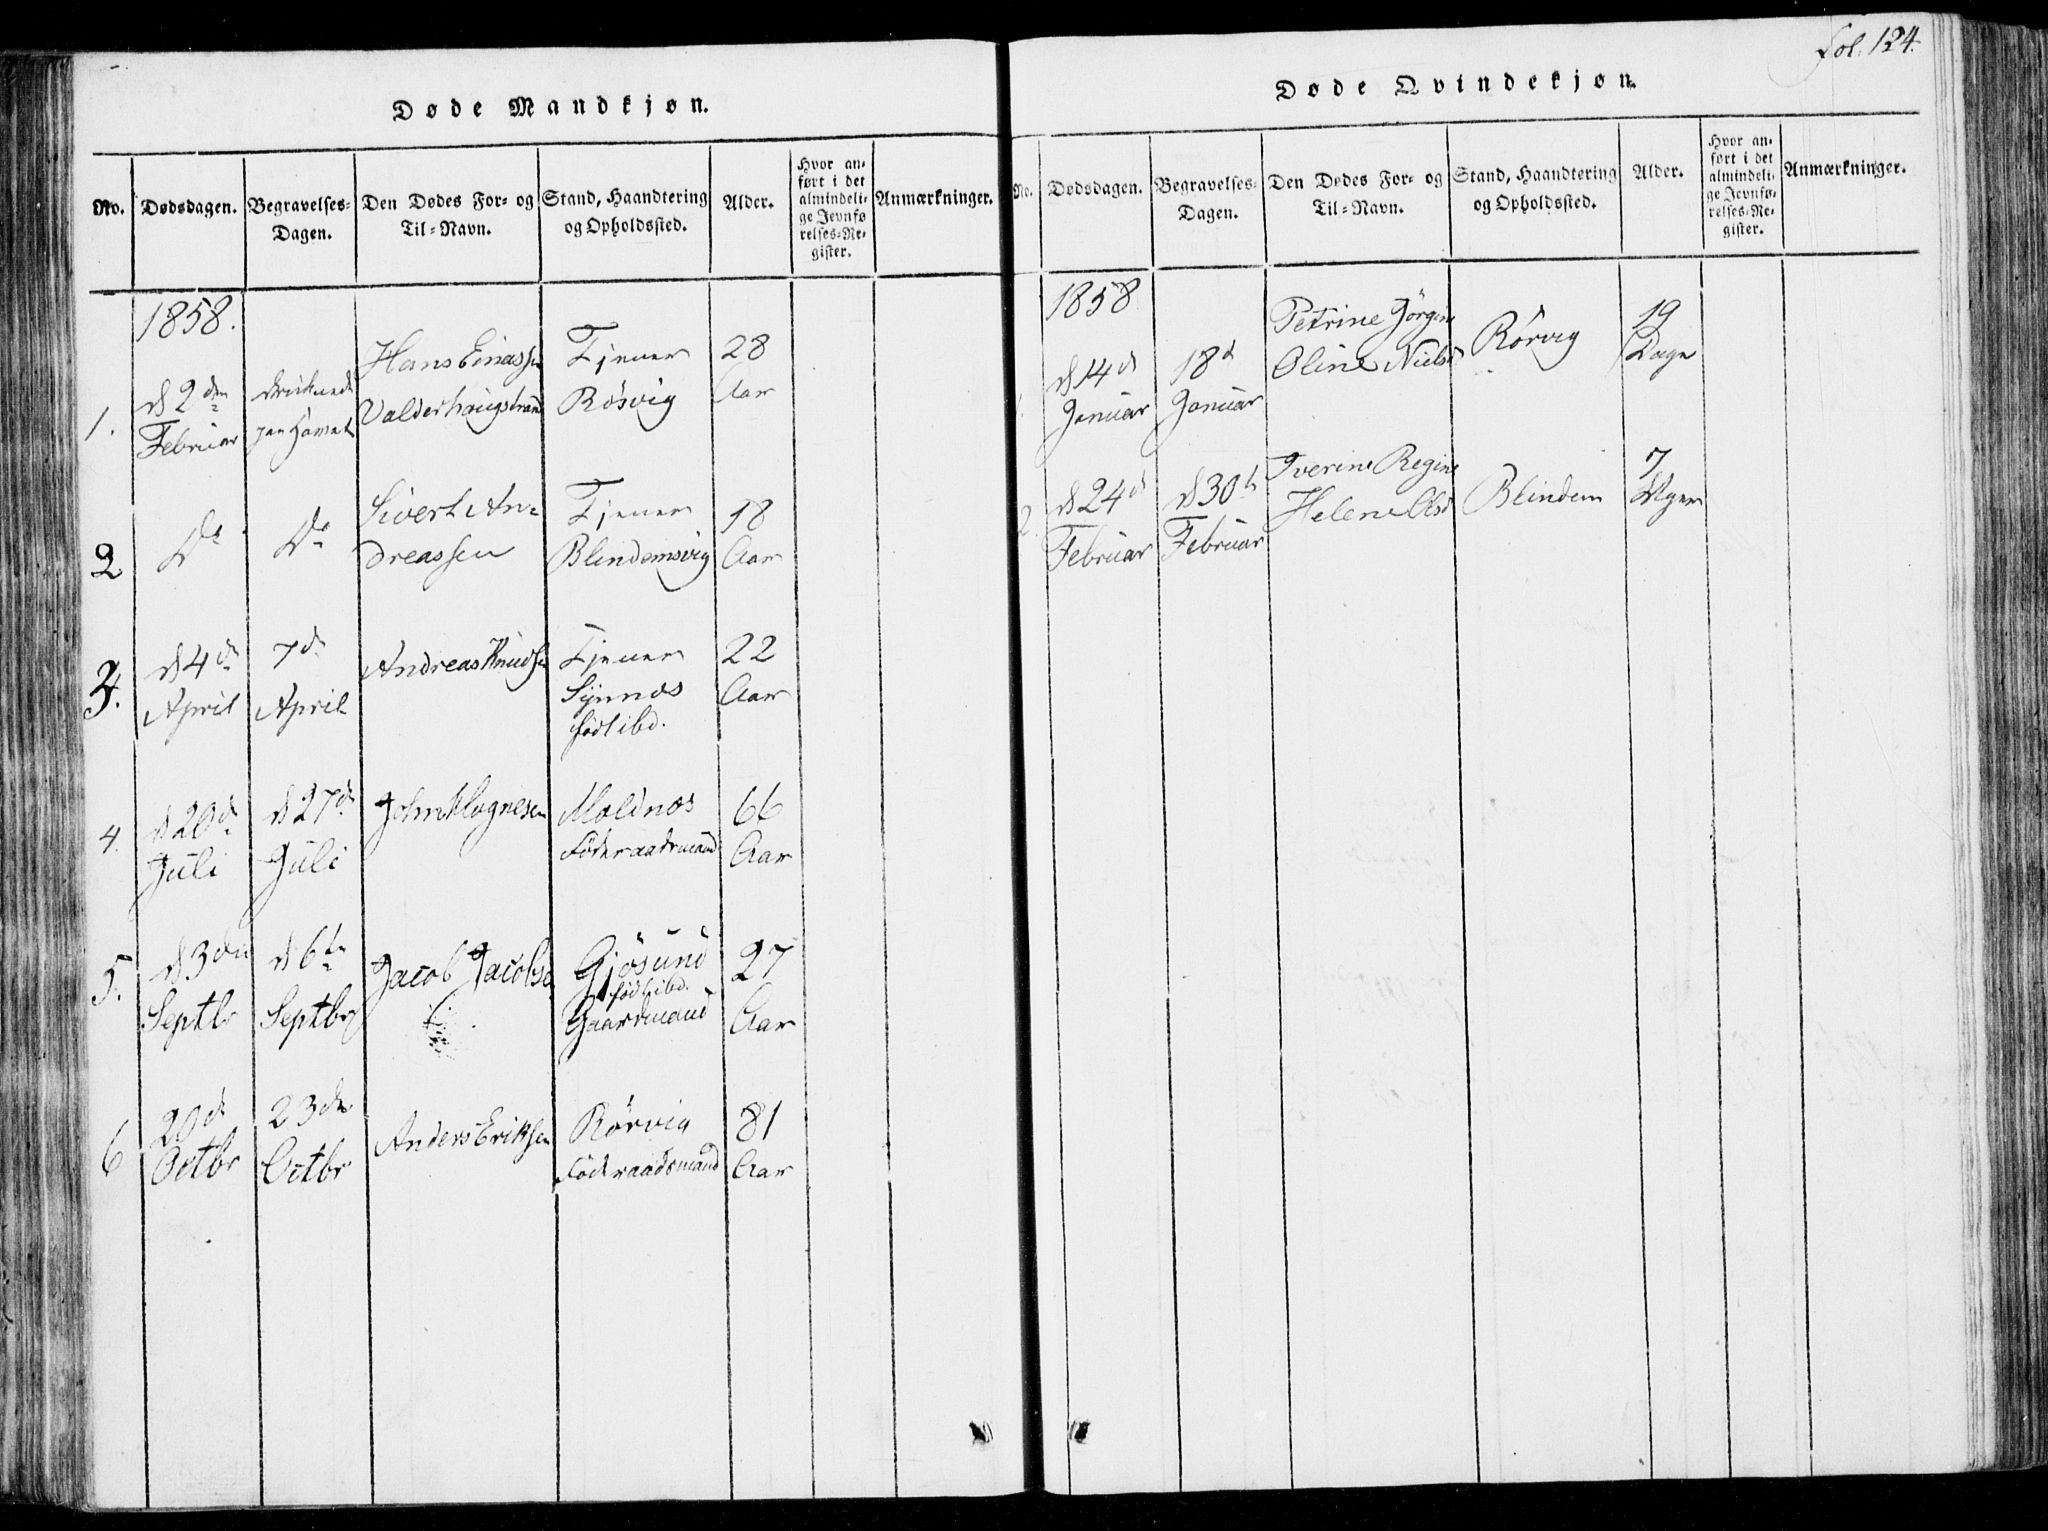 fol. 124.
Døde Mandkjøn.
No.
Dødsdagen.
Begravelses-
Dagen.
Den Dødes For- og
Til-Navn.
Stand, Haandtering
og Opholdssted.
Alder.
Hvor an-
ført i det
almindeli-
ge Jevnfø
relses-Re-
gister.
Anmærkninger.
1858.
1.
d 2den
Februar
druknede
paa Havet
Hans Einassen
Valderhaugstrand
Tjener
Rösvig
28
Aar
2
Do
Do
Sivert An-
dreassen
Tjener
Blindemsvig
18
Aar
3.
d 4de
April
7de
April
Andreas Knudsen
Tjener
Synnes
født ibd.
22
Aar
4.
d 20d
Juli
d 27d
Juli
John Mognesen
Moldnes
Föderaadsmand
66
Aar
5.
d 3den
Septbr
d 6te
Septbr
Jacob Jacobsen
Gjösund
født ibd.
Gaardmand
27
Aar
6
20d
Octbr
23de
Octbr
Anders Eriksen
Rörvig
Föderaadsmand
81
Aar
Døde Qvindekjøn.
No.
Dødsdagen.
Begravelses-
Dagen.
Den Dødes For- og
Til-Navn.
Stand, Haandtering
og Opholdssted.
Alder.
Hvor an-
ført i det
almindeli-
ge Jevnfø-
relses-Re-
gister.
Anmærkninger.
1858
1.
d 14d
Januar
18d
Januar
Petrine Jörgine
Oline Nielsd
Rörvig
19
Dage
2.
d 24d
Februar
d 30te
Februar
Iverine Regine
Helene Olsd
Blindem
7
Uger